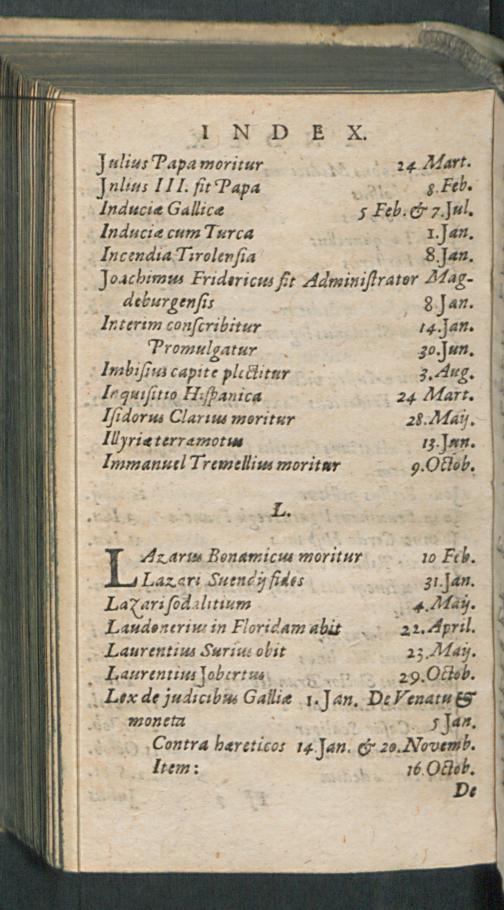 INDEX.
Julius Papa moritur 24 Mart.
Jnlius III. fit Papa 8.Feb.
Induciæ Gallicæ 5 Feb. & 7.Jul.
Induciæ cum Turca 1.Jan.
Incendia Tirolensia 8.Jan.
Joachimus Fridericus fit Administrator Mag-
deburgensis 8 Jan.
Interim conscribitur 14.Jan.
Promulgatur 30.Jun.
Imbisius capite plectitur 3.Aug.
Inquisitio Hispanica 24 Mart.
Isidorus Clarius moritur 28.Maij.
Illyriæ terramotus 13.Jun.
Immanuel Tremellius moritur 9.Octob.
L.
LAzarus Bonamicus moritur 10 Feb.
Lazari Suendij fides 31.Jan.
Lazari sodalitium 4.Maij.
Laudonerius in Floridam abit 22.April.
Laurentius Surius obit 23.Maij.
Laurentius Jobertus 29.Octob.
Lex de judicibus Galliæ 1.Jan. De Venatu &
moneta 5 Jan.
Contra hæreticos 14.Jan. & 20.Novemb.
Item: 16.Octob.
De